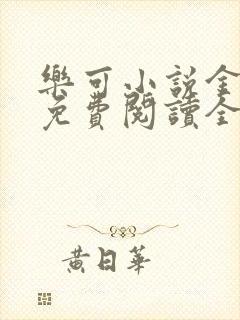 樂可小說全
免費閱讀全
黃日華